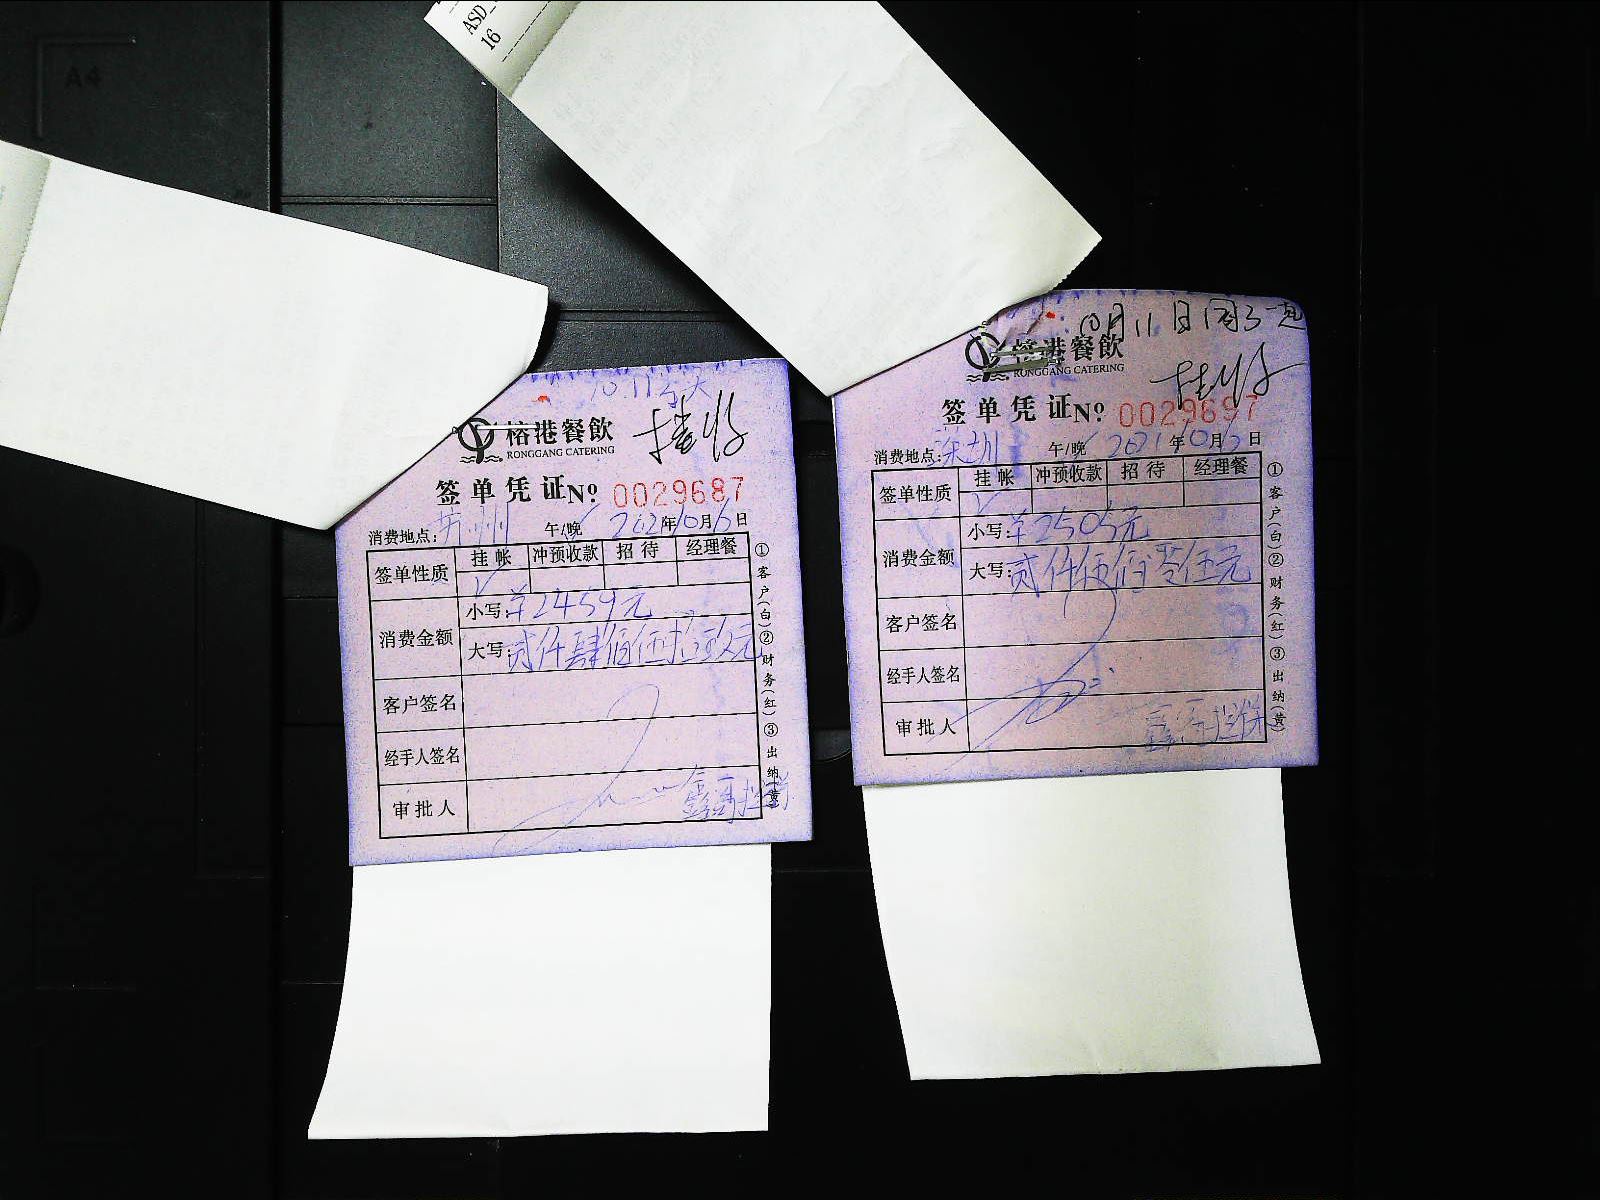 A4
ASD_
16
10.11
挂账
榕港餐飲
RONGGANG CATERING
签单凭证№ 0029687
消费地点：苏州 午/晚 202 年10月6日
签单性质 挂帐 冲预收款 招待 经理餐
消费金额 小写：￥2459元
大写：贰仟肆佰伍拾玖元
客户签名
经手人签名
审批人
①客户(白)②财务(红)③出纳(黄)
10月11日
挂账
榕港餐飲
RONGGANG CATERING
签单凭证№ 0029697
消费地点：深圳 午/晚 2021年10月 日
签单性质 挂帐 冲预收款 招待 经理餐
消费金额 小写：￥2505元
大写：贰仟伍佰零伍元
客户签名
经手人签名
审批人
①客户(白)②财务(红)③出纳(黄)